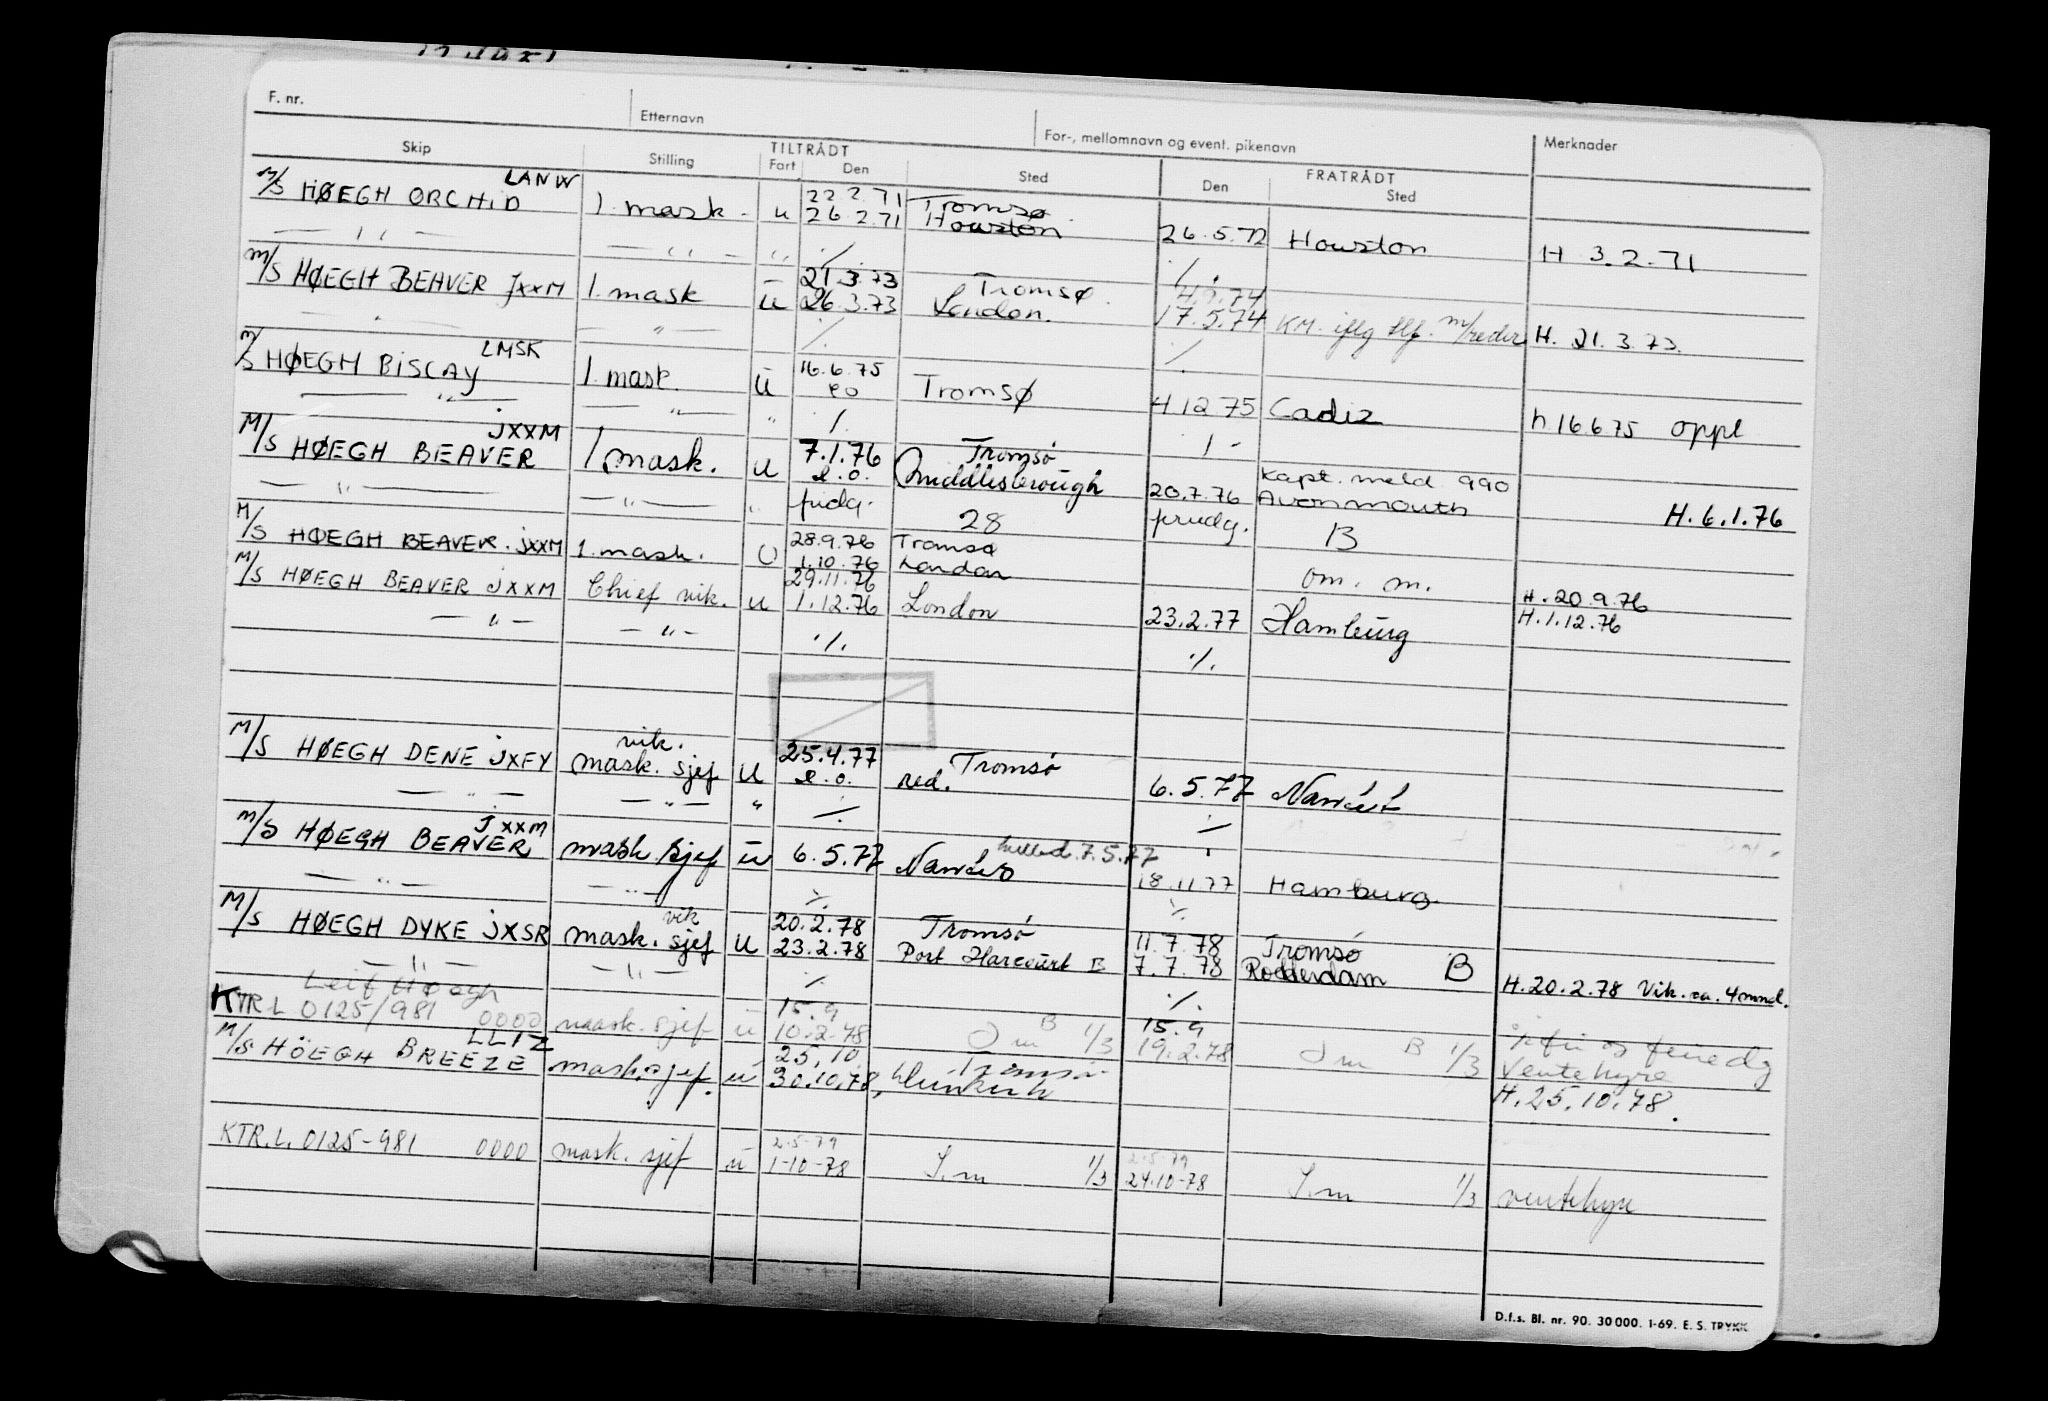 F. nr. Etternavn For-, mellomnavn og event. pikenavn Merknader
Skip Stilling TILTRÅDT Fart Den Sted Den FRATRÅDT Sted
LANW 22.2.71 Tromsø
M/S HØEGH ORCHID 1. mask. u 26.2.71 Houston 26.5.72 Houston H 3.2.71
— " — — " — " ./. ./.
21.3.73 Tromsø
M/S HØEGH BEAVER JXXM 1. mask u 26.3.73 London. 17.5.74 KM. iflg tlf. m/rederi H. 21.3.73.
— " — — " — ./. ./.
LMSK 16.6.75
M/S HØEGH BISCAY 1. mask. u eo Tromsø 4.12.75 Cadiz h 16.6.75 oppl
— " — — " — " ./. ./.
JXXM 7.1.76 Tromsø Kapt. meld. 990
M/S HØEGH BEAVER 1. mask. u e.o. Middlesbrough 20.7.76 Avonmouth H. 6.1.76
— " — — " — " prudg. 28 prudg. B
28.9.76 Tromsø
M/S HØEGH BEAVER. JXXM 1. mask. U 1.10.76 London om. m. H. 20.9.76
29.11.76
M/S HØEGH BEAVER JXXM Chief vik. u 1.12.76 London 23.2.77 Hamburg H. 1.12.76
— " — — " — ./. ./.
vik. 25.4.77 Tromsø
M/S HØEGH DENE JXFY mask. sjef u e.o. red. 6.5.77
— " — — " — " ./. ./.
JXXM
M/S HØEGH BEAVER mask sjef u 6.5.77 7.5.77 18.11.77 Hamburg.
— " — — " — ./. ./.
vik 20.2.78 Tromsø 11.7.78 Tromsø
M/S HØEGH DYKE JXSR mask. sjef u 23.2.78 Port Harcourt B 7.7.78 Rodderdam B H. 20.2.78 Vik. ca. 4 mnd.
— " — — " — ./. ./.
Leif Høegh 15.9 15.9
KTR.L 0125/981 0000 mask. sjef u 10.2.78 I m B 1/3 19.2.78 I m B 1/3 Ventehyre
LLIZ 25.10 Tromsø
M/S HÖEGH BREEZE mask. sjef. u 30.10.78, H. 25.10.78.
2.5.79 2.5.79
KTR.L. 0125-981 0000 mask. sjef u 1-10-78 I.m 1/3 24.10-78 I.m 1/3 ventehyre
D.f.s. Bl. nr. 90. 30 000. 1-69. E. S. TRYKK